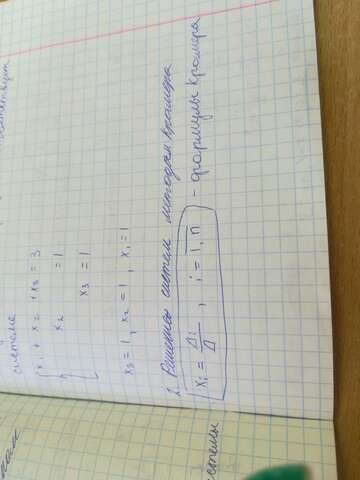 системе
x₁ + x₂ + x₃ = 3
x₂ = 1
x₃ = 1
x₃ = 1, x₂ = 1, x₁ = 1
2. Решение систем методом Крамера
xᵢ = Δᵢ/Δ, i = 1,n - формулы Крамера